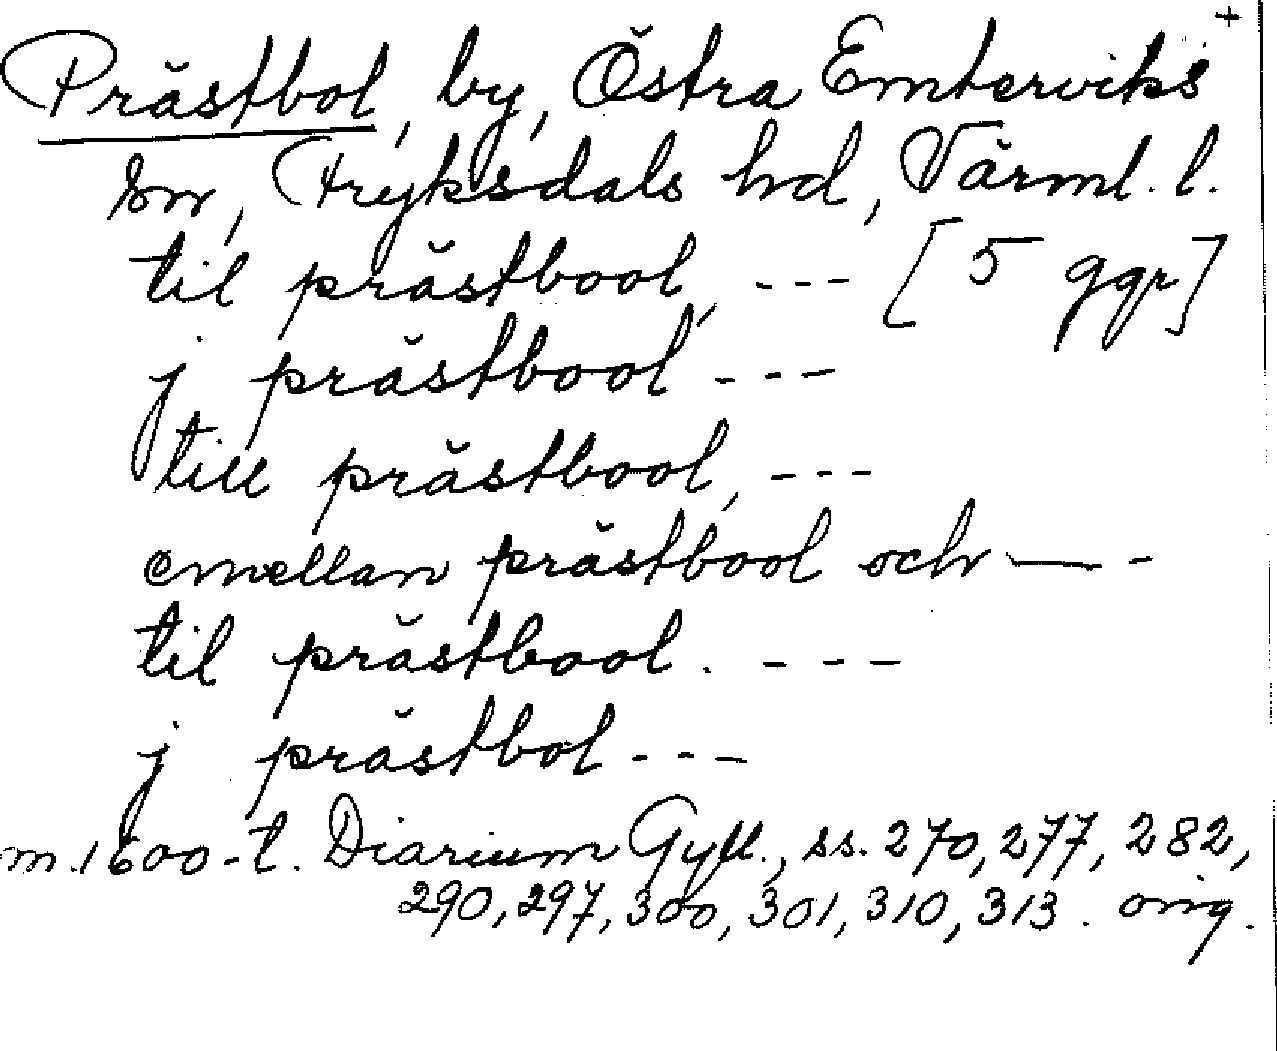 +
Prästbol, by, Östra Emterviks
sn, Fryksdals hd, Värml. l.
til prästbool, --- [5 ggr]
j prästbool ---
till prästbool, ---
emellan prästbool och ---
til prästbool. ---
j prästbol ---
m. 1600-t. Diarium Gyll., ss. 270, 277, 282,
290, 297, 300, 301, 310, 313. orig.